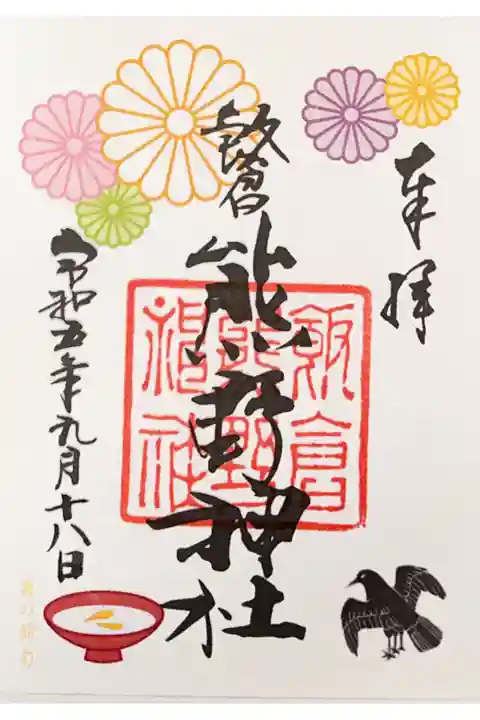 奉拝
飯倉
熊野神社
飯倉
熊野
神社
令和五年九月十八日